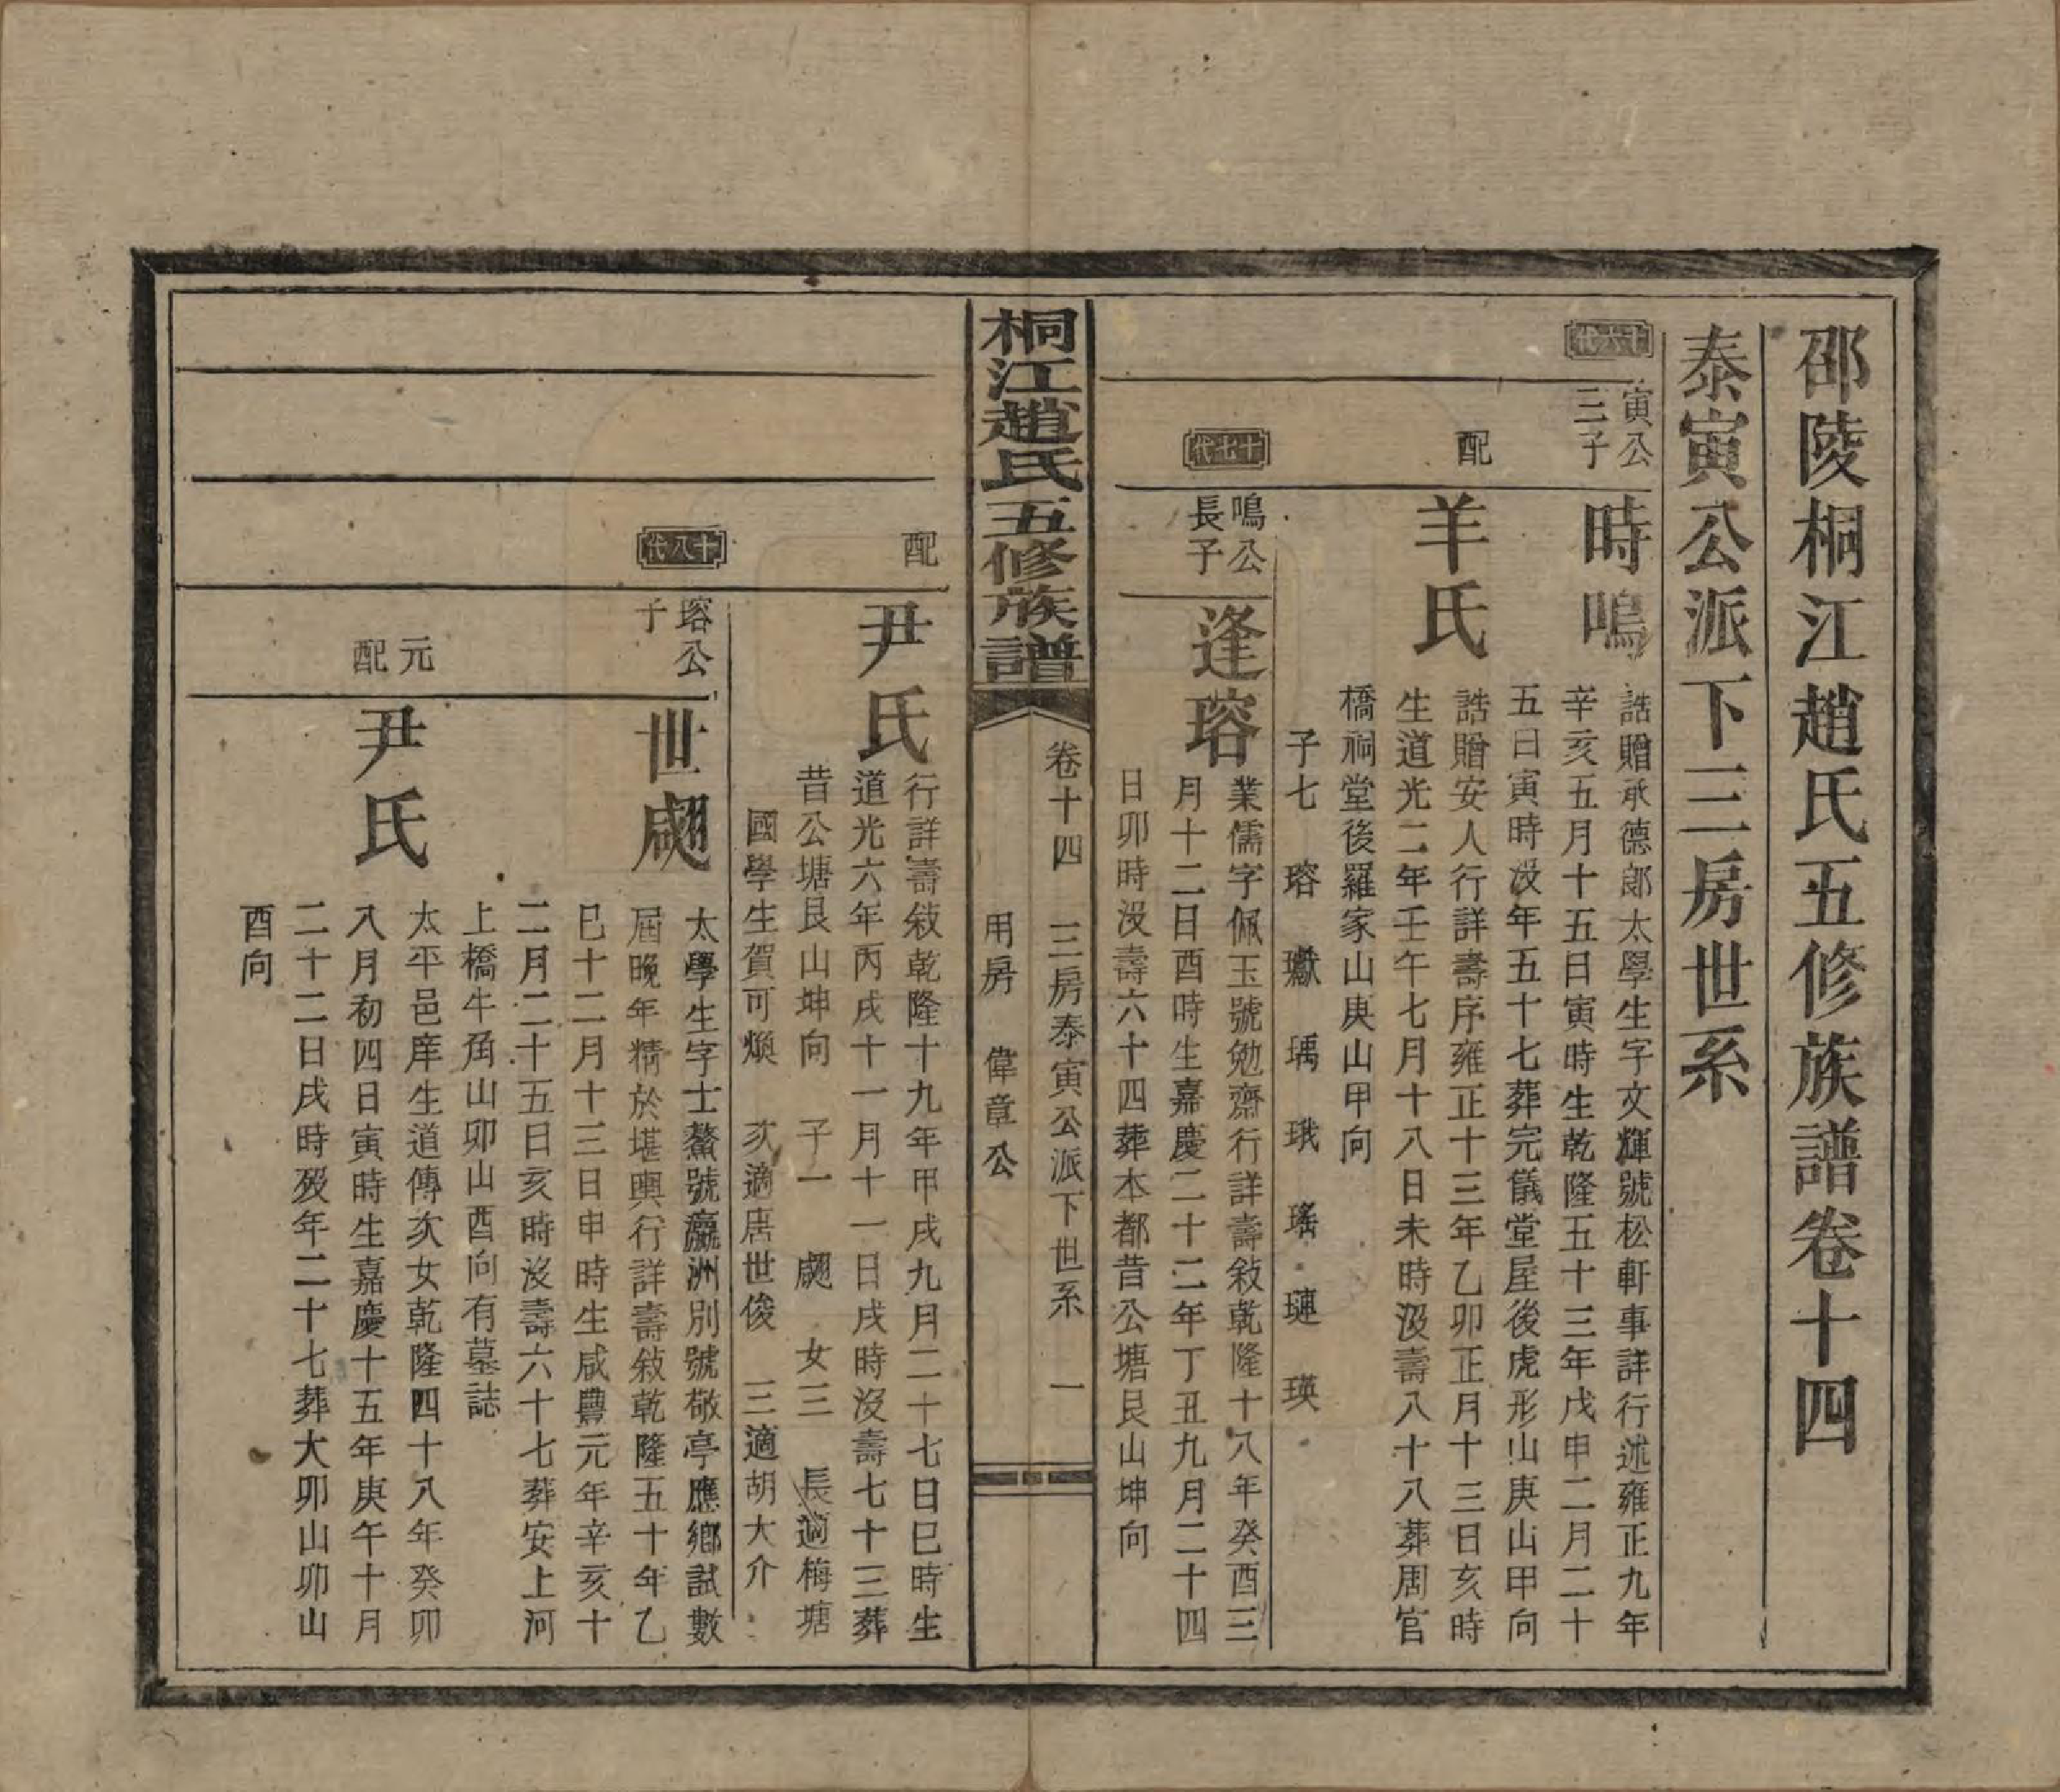 邵陵桐江趙氏五修族譜卷十四
泰寅公派下三房世系
十六代
寅公
三子
時鳴
誥贈承德郎太學生字文輝號松軒事詳行述雍正九年
辛亥五月十五日寅時生乾隆五十三年戊申二月二十
五日寅時沒年五十七葬完儀堂屋後虎形山庚山甲向
配
羊氏
誥贈安人行詳壽序雍正十三年乙卯正月十三日亥時
生道光二年壬午七月十八日未時沒壽八十八葬周官
橋祠堂後羅家山庚山甲向
子七 瑢 瓛 瑀 珴 瑤 璉 瑛
十七代
鳴公
長子
逢瑢
業儒字佩玉號勉齋行詳壽敍乾隆十八年癸酉三
月十二日酉時生嘉慶二十二年丁丑九月二十四
日卯時沒壽六十四葬本都昔公塘艮山坤向
桐江趙氏五修族譜
卷十四 三房泰寅公派下世系 一
用房 偉章公
配
尹氏
行詳壽敍乾隆十九年甲戌九月二十七日巳時生
道光六年丙戌十一月十一日戌時沒壽七十三葬
昔公塘艮山坤向 子一 翽 女三 長適梅塘
國學生賀可煥 次適唐世俊 三適胡大介
十八代
瑢公
子
世翽
太學生字士鰲號瀛洲別號敬亭應鄉試數
屆晚年精於堪輿行詳壽敍乾隆五十年乙
巳十二月十三日申時生咸豐元年辛亥十
二月二十五日亥時沒壽六十七葬安上河
上橋牛角山卯山酉向有墓誌
元
配
尹氏
太平邑庠生道傳次女乾隆四十八年癸卯
八月初四日寅時生嘉慶十五年庚午十月
二十二日戌時歿年二十七葬大卯山卯山
酉向